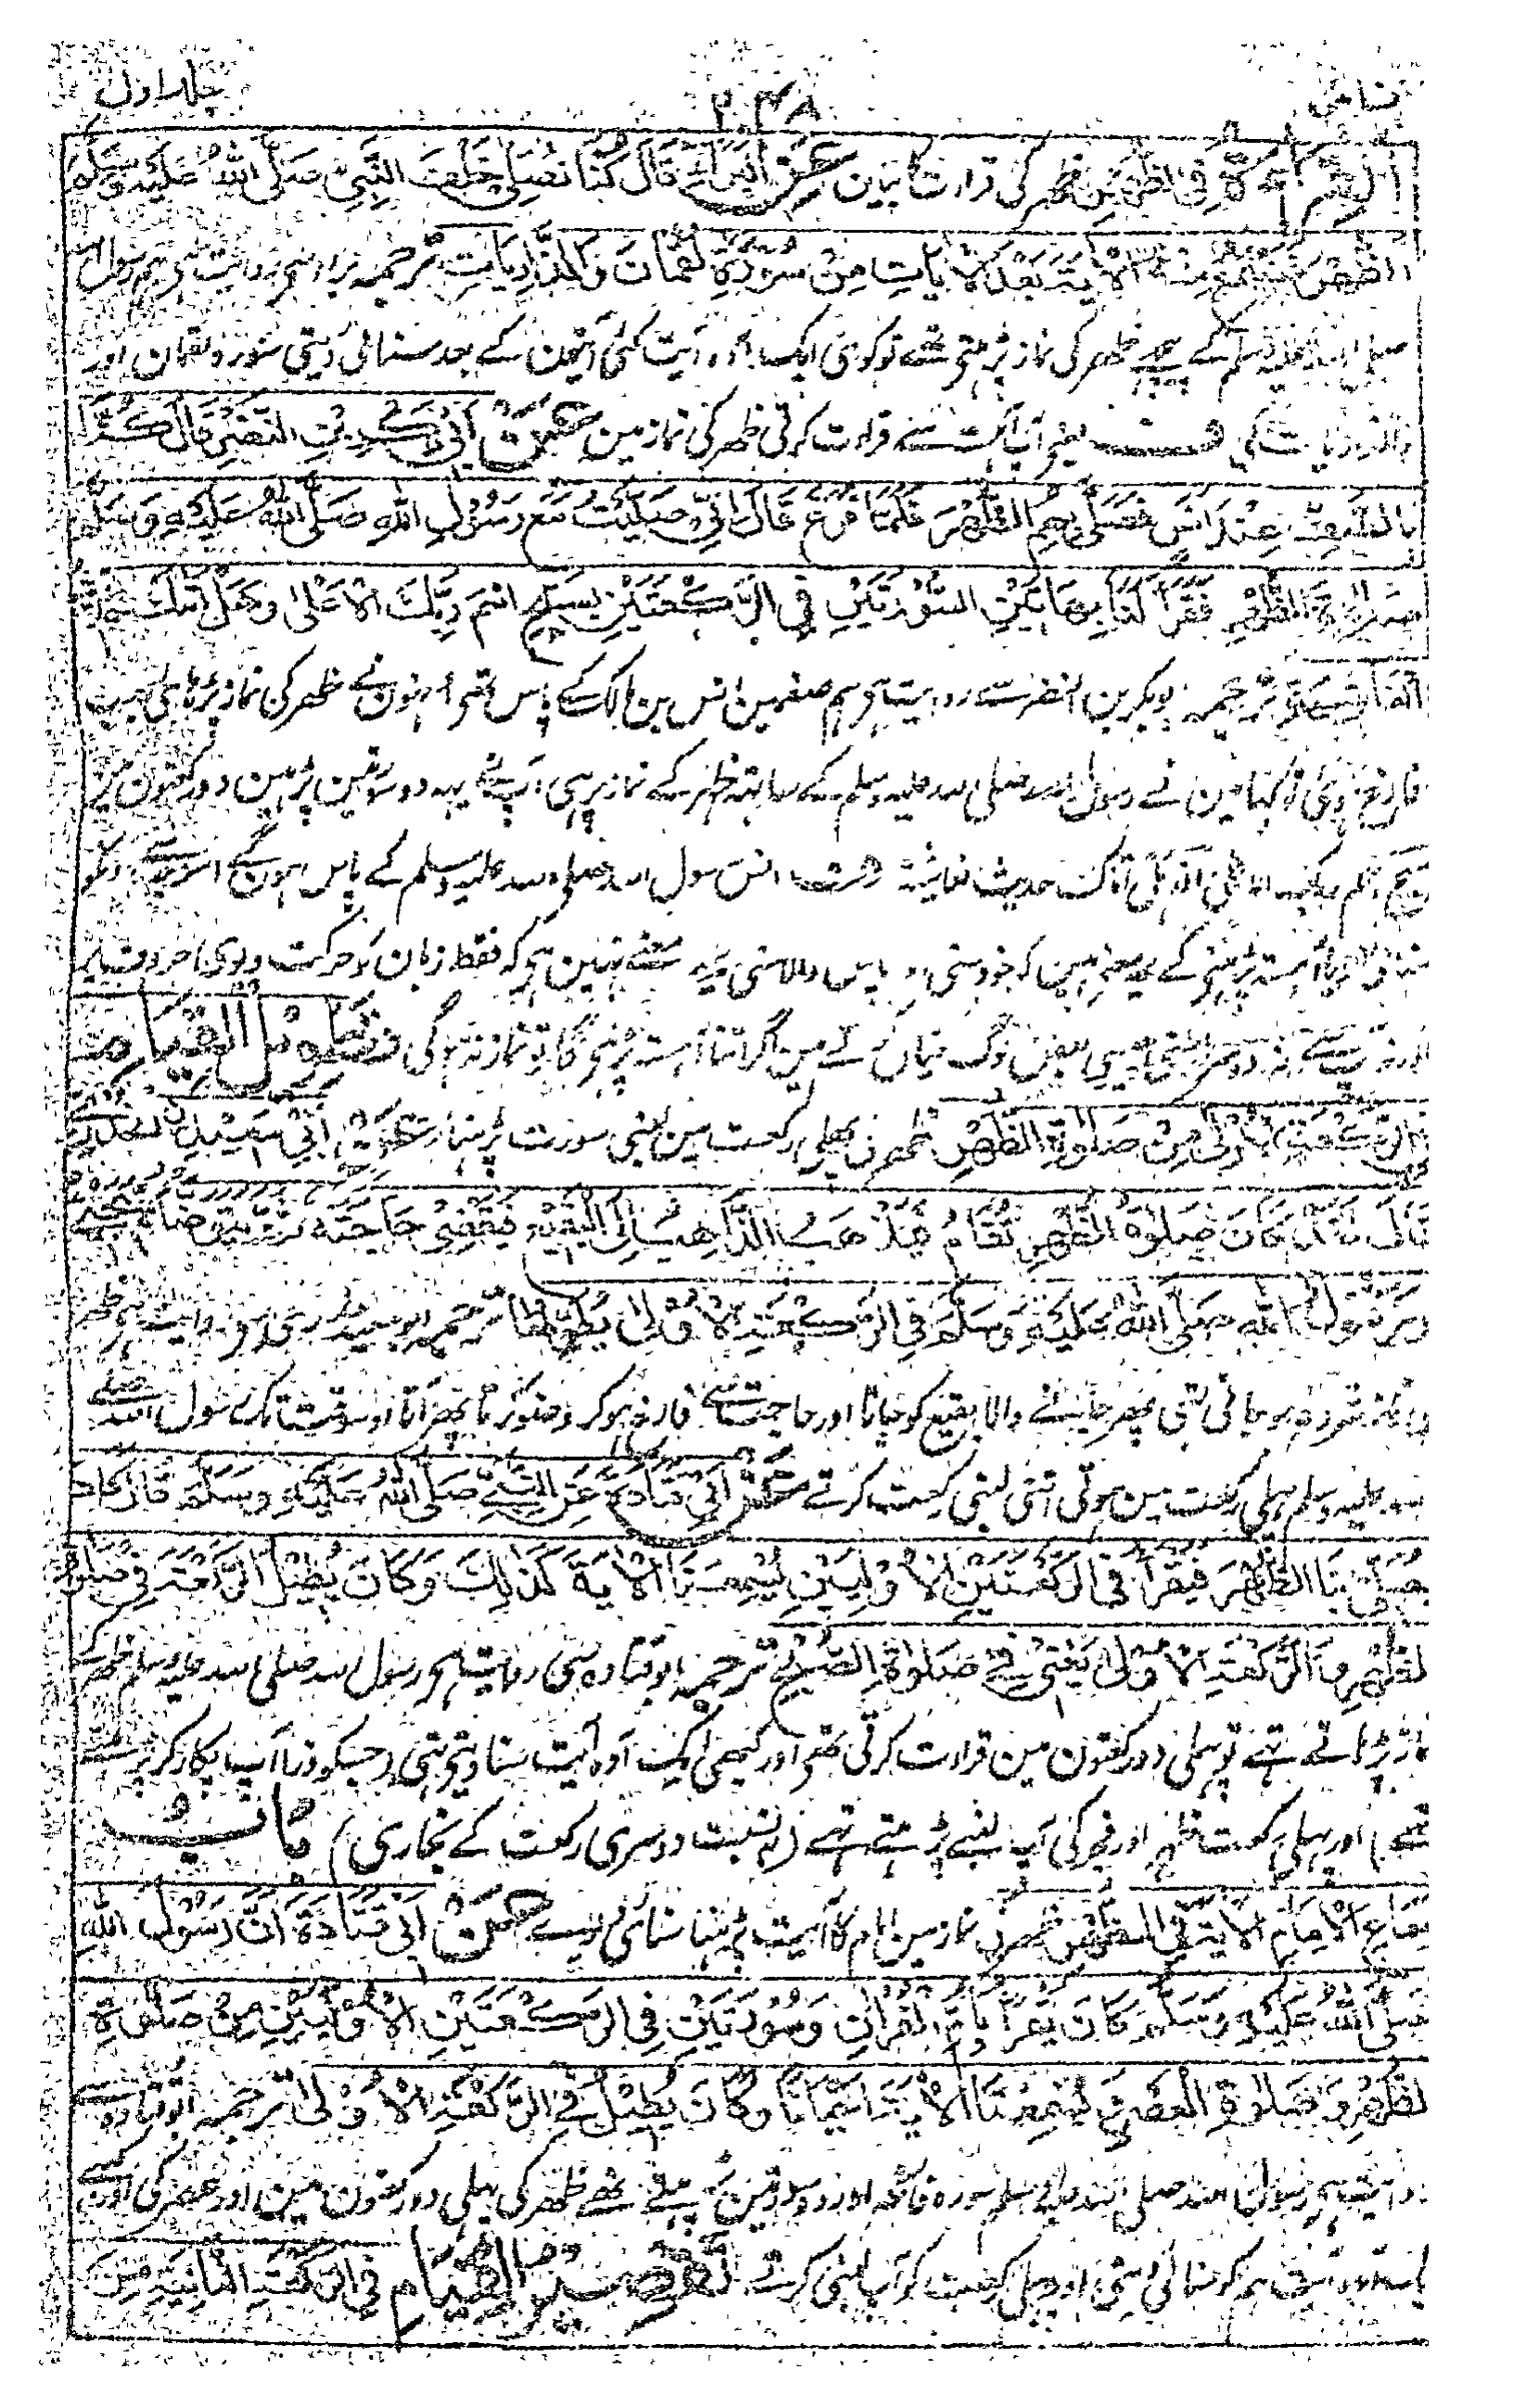 نسائی ۲۴۸ جلد اول
القراءة فی الظهر ظہر کی قرارت کا بیان عن البراء قال کنا نصلی خلف النبی صلی اللہ علیہ وسلم
الظهر فنسمع منه الآیة بعد الآیات من سورة لقمان والذاریات ترجمہ براء سے روایت ہے ہم رسول
صلی اللہ علیہ وسلم کے پیچھے ظہر کی نماز پڑھتے تھے تو کوئی ایک آدہ آیت کئی آیتون کے بعد سنائی دیتی سورہ لقمان اور
والذاریات کی ف یعنے آپ آہستہ سے قرارت کرتے ظہر کی نماز مین عن ابی بکر بن النضر قال کنا
بالطف عند انس فصلی بهم الظهر فلما فرغ قال انی صلیت مع رسول اللہ صلی اللہ علیہ وسلم
صلوة الظهر فقرأ لنا بهاتین السورتین فی الرکعتین بسبح اسم ربک الاعلی وهل اتک حدیث
الغاشیة ترجمہ ابوبکر بن النضر سے روایت ہے ہم صف مین انس بن مالک کے پاس تھے انہون نے ظہر کی نماز پڑھائی جب
فارغ ہوئے تو کہا مین نے رسول اللہ صلی اللہ علیہ وسلم کے ساتھ ظہر کے نماز پڑہی آپ نے یہہ دو سورتین پڑہین دو رکعتون مین
سبح اسم ربک الاعلی اور ہل اتاک حدیث الغاشیة ف انس رسول اللہ صلی اللہ علیہ وسلم کے پاس ہون گے
آہستہ پڑہنے کے یہ معنے ہین کہ خود سنے اور پاس والا سنے یہہ معنے نہین ہے کہ فقط زبان کو حرکت دیوے
بعض لوگ خیال کرتے ہین اگر اتنا آہستہ پڑہیگا تو نماز نہ ہوگی تطویل القیام
فی الرکعة الاولی من صلوة الظهر ظہر کی پہلی رکعت مین لنبی سورت پڑہنا عن ابی سعید الخدری
قال لقد کان صلوة الظهر تقام فیذهب الذاهب الی البقیع فیقضی حاجته ثم یتوضأ ثم یجئ
ورسول اللہ صلی اللہ علیہ وسلم فی الرکعة الاولی یطولها ترجمہ ابو سعید خدری سے روایت ہے ظہر
کی نماز شروع ہو جاتی تھی پھر جانے والا بقیع کو جاتا اور حاجت سے فارغ ہو کر وضو کرتا پھر آتا اوسوقت تک رسول اللہ صلے
اللہ علیہ وسلم پہلی رکعت مین ہوتے اتنی لنبی رکعت کرتے عن ابی قتادة عن النبی صلی اللہ علیہ وسلم قال کان
یصلی بنا الظهر فیقرأ فی الرکعتین الاولیین یسمعنا الآیة کذلک وکان یطیل الرکعة فی صلوة
الظهر والرکعة الاولی یعنی فی صلوة الصبح ترجمہ ابو قتادہ سے روایت ہے رسول اللہ صلی اللہ علیہ وسلم ظہر کے
نماز پڑھاتے تہے تو پہلی دو رکعتون مین قرارت کرتے تھے اور کبھی ایک آدہ آیت سنا دیتے تہے (جسکو ذرا آپ پکار کر پڑہتے
تھے) اور پہلی رکعت ظہر اور فجر کی آپ لنبے پڑہتے تہے (بہ نسبت دوسری رکعت کے بخاری) باب
اسماع الامام الآیة فی الظهر ظہر کی نماز مین امام کا آیت پڑہنا سنائی دیوے عن ابی قتادة ان رسول اللہ
صلی اللہ علیہ وسلم کان یقرأ بام القرآن وسورتین فی الرکعتین الاولیین من صلوة
الظهر وصلوة العصر ویسمعنا الآیة احیانا وکان یطیل فی الرکعة الاولی ترجمہ ابو قتادہ سے
روایت ہے رسول اللہ صلی اللہ علیہ وسلم سورہ فاتحہ اور دو سورتین پڑہتے تھے ظہر کی پہلی دو رکعتون مین اور عصر کی اور کبھی
ہم کو سنائی دیتی اور پہلی رکعت کو آپ لنبی کرتے تقصیر القیام فی الرکعة الثانیة من